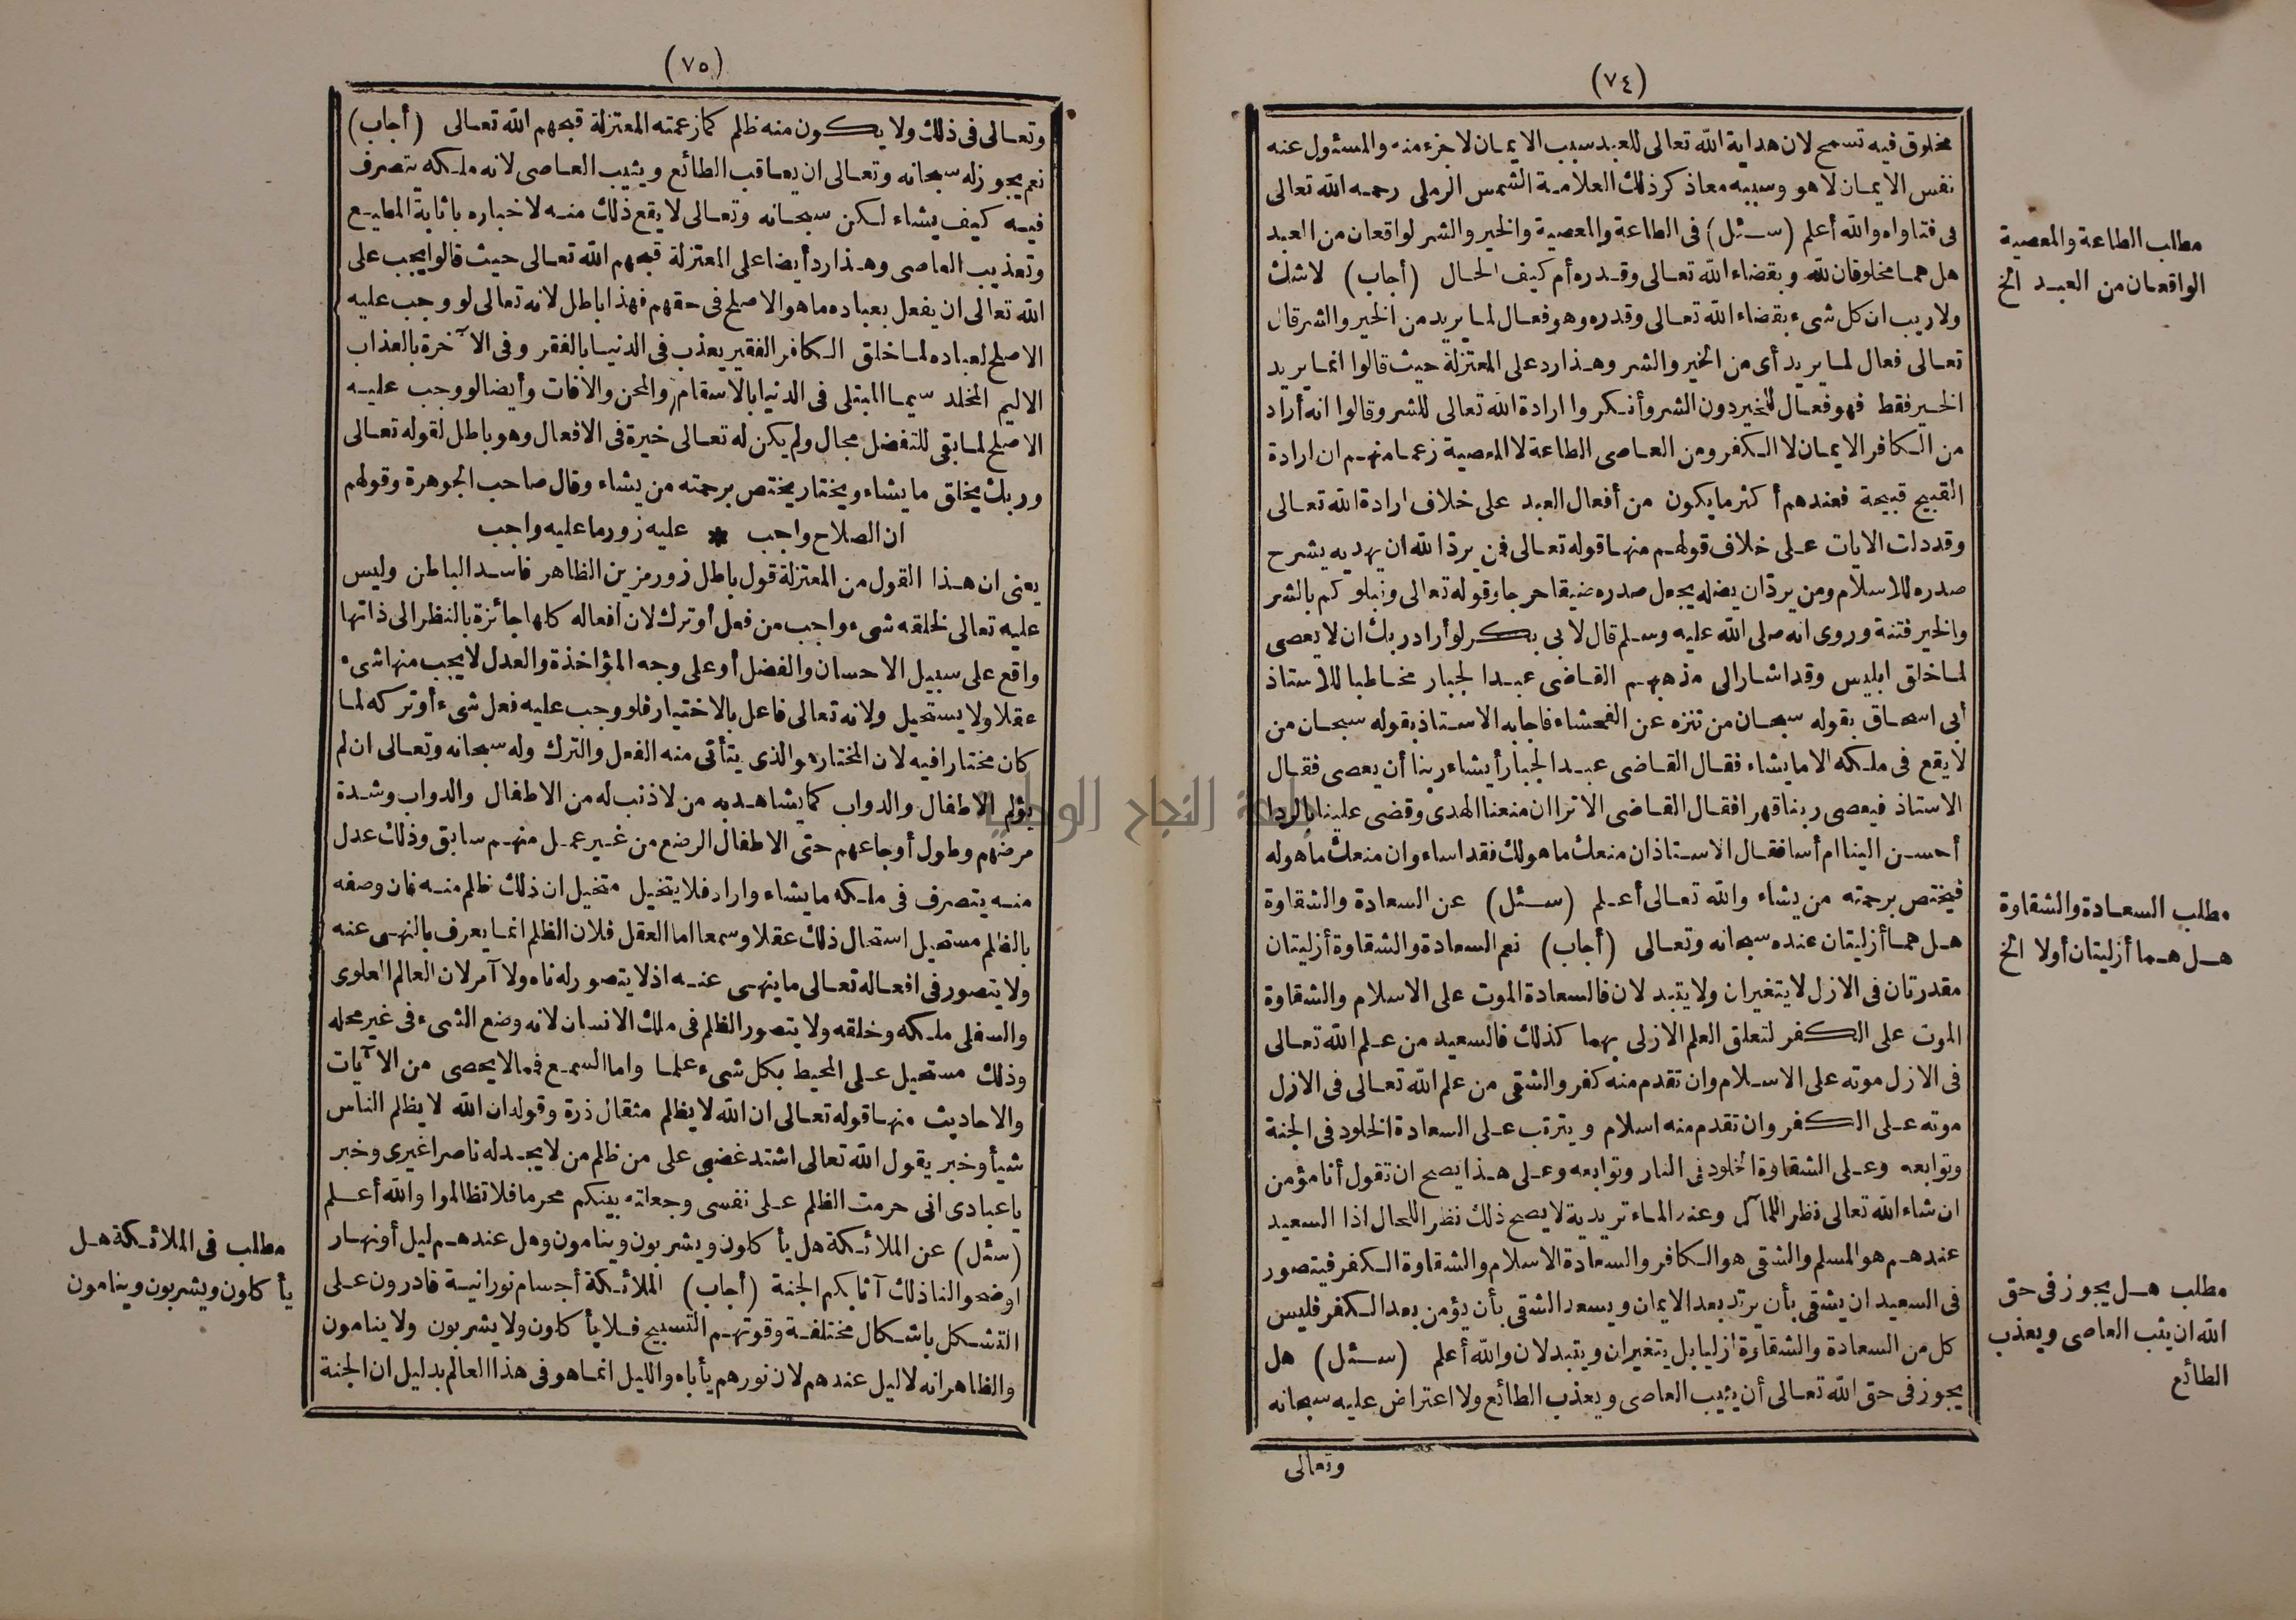 (٧٤)
مخلوق فيه تسمح لان هداية الله تعالى للعبد سبب الايمان لا جزء منه والمسؤل عنه
نفس الايمان لا هو وسببه معا ذكر ذلك العلامة الشمس الرملى رحمه الله تعالى
فى فتاواه والله أعلم (سئل) فى الطاعة والمعصية والخير والشر لواقعان من العبد
هل هما مخلوقان لله وبقضاء الله تعالى وقدره أم كيف الحال (أجاب) لا شك
ولا ريب ان كل شىء بقضاء الله تعالى وقدره وهو فعال لما يريد من الخير والشر قال
تعالى فعال لما يريد أى من الخير والشر وهذا رد على المعتزلة حيث قالوا انما يريد
الخير فقط فهو فعال للخير دون الشر وأنكروا ارادة الله تعالى للشر وقالوا انه أراد
من الكافر الايمان لا الكفر ومن العاصى الطاعة لا المعصية زعما منهم ان ارادة
القبيح قبيحة فعندهم أكثر ما يكون من أفعال العبد على خلاف ارادة الله تعالى
وقد دلت الايات على خلاف قولهم منها قوله تعالى فمن يرد الله ان يهديه يشرح
صدره للاسلام ومن يرد ان يضله يجعل صدره ضيقا حرجا وقوله تعالى ونبلوكم بالشر
والخير فتنة وروى انه صلى الله عليه وسلم قال لابى بكر لو أراد ربك ان لا يعصى
لما خلق ابليس وقد اشار الى مذهبهم القاضى عبد الجبار مخاطبا للاستاذ
أبى اسحاق بقوله سبحان من تنزه عن الفحشاء فاجابه الاستاذ بقوله سبحان من
لا يقع فى ملكه الا ما يشاء فقال القاضى عبد الجبار أيشاء ربنا أن يعصى فقال
الاستاذ فيعصى ربنا قهرا فقال القاضى الا ترا ان منعنا الهدى وقضى علينا بالردا
أحسن الينا ام أسا فقال الاستاذ ان منعك ما هو لك فقد اساء وان منعك ما هو له
فيختص برحمته من يشاء والله تعالى أعلم (سئل) عن السعادة والشقاوة
هل هما أزليتان عنده سبحانه وتعالى (أجاب) نعم السعادة والشقاوة أزليتان
مقدرتان فى الازل لا يتغيران ولا يتبدلان فالسعادة الموت على الاسلام والشقاوة
الموت على الكفر لتعلق العلم الازلى بهما كذلك فالسعيد من علم الله تعالى
فى الازل موته على الاسلام وان تقدم منه كفر والشقى من علم الله تعالى فى الازل
موته على الكفر وان تقدم منه اسلام ويترتب على السعادة الخلود فى الجنة
وتوابعه وعلى الشقاوة الخلود فى النار وتوابعه وعلى هذا يصح ان تقول أنا مؤمن
ان شاء الله تعالى نظرا للمآل وعند الماتريدية لا يصح ذلك نظرا للحال اذا السعيد
عندهم هو المسلم والشقى هو الكافر والسعادة الاسلام والشقاوة الكفر فيتصور
فى السعيد ان يشقى بأن يرتد بعد الايمان ويسعد الشقى بأن يؤمن بعد الكفر فليس
كل من السعادة والشقاوة ازليا بل يتغيران ويتبدلان والله أعلم (سئل) هل
يجوز فى حق الله تعالى أن يثيب العاصى ويعذب الطائع ولا اعتراض عليه سبحانه
وتعالى
مطلب الطاعة والمعصية
الواقعان من العبد الخ
مطلب السعادة والشقاوة
هل هما أزليتان أولا الخ
مطلب هل يجوز فى حق
الله ان يثب العاصى ويعذب
الطائع
(٧٥)
وتعالى فى ذلك ولا يكون منه ظلم كما زعمته المعتزلة قبحهم الله تعالى (أجاب)
نعم يجوز له سبحانه وتعالى ان يعاقب الطائع ويثيب العاصى لانه ملكه يتصرف
فيه كيف يشاء لكن سبحانه وتعالى لا يقع ذلك منه لاخباره باثابة المطيع
وتعذيب العاصى وهذا رد أيضا على المعتزلة قبحهم الله تعالى حيث قالوا يجب على
الله تعالى ان يفعل بعباده ما هو الاصلح فى حقهم فهذا باطل لانه تعالى لو وجب عليه
الاصلح لعباده لما خلق الكافر الفقير يعذب فى الدنيا بالفقر وفى الآخرة بالعذاب
الاليم المخلد سيما المبتلى فى الدنيا بالاسقام والمحن والافات وأيضا لو وجب عليه
الاصلح لما بقى للتفضل مجال ولم يكن له تعالى خيرة فى الافعال وهو باطل لقوله تعالى
وربك يخلق ما يشاء ويختار يختص برحمته من يشاء وقال صاحب الجوهرة وقولهم
ان الصلاح واجب * عليه زور ما عليه واجب
يعنى ان هذا القول من المعتزلة قول باطل زور مزين الظاهر فاسد الباطن وليس
عليه تعالى لخلقه شىء واجب من فعل أو ترك لان افعاله كلها جائزة بالنظر الى ذاتها
واقع على سبيل الاحسان والفضل أو على وجه المؤاخذة والعدل لا يجب منها شىء
عقلا ولا يستحيل ولانه تعالى فاعل بالاختيار فلو وجب عليه فعل شىء أو تركه لما
كان مختارا فيه لان المختار هو الذى يتأتى منه الفعل والترك وله سبحانه وتعالى ان لم
يؤلم الاطفال والدواب كما يشاهد به من لا ذنب له من الاطفال والدواب وشدة
مرضهم وطول أوجاعهم حتى الاطفال الرضع من غير عمل منهم سابق وذلك عدل
منه يتصرف فى ملكه ما يشاء واراد فلا يتخيل متخيل ان ذلك ظلم منه فان وصفه
بالظلم مستحيل استحال ذلك عقلا وسمعا اما العقل فلان الظلم انما يعرف بالنهى عنه
ولا يتصور فى افعاله تعالى ما ينهى عنه اذ لا يتصور له ناه ولا آمر لان العالم العلوى
والسفلى ملكه وخلقه ولا يتصور الظلم فى ملك الانسان لانه وضع الشىء فى غير محله
وذلك مستحيل على المحيط بكل شىء علما واما السمع فما لا يحصى من الآيات
والاحاديث منها قوله تعالى ان الله لا يظلم مثقال ذرة وقوله ان الله لا يظلم الناس
شيأ وخبر يقول الله تعالى اشتد غضبى على من ظلم من لا يجد له ناصرا غيرى وخبر
يا عبادى انى حرمت الظلم على نفسى وجعلته بينكم محرما فلا تظالموا والله أعلم
(سئل) عن الملائكة هل يأكلون ويشربون وينامون وهل عندهم ليل أو نهار
اوضحوا لنا ذلك آثابكم الجنة (أجاب) الملائكة أجسام نورانية قادرون على
التشكل باشكال مختلفة وقوتهم التسبيح فلا يأكلون ولا يشربون ولا ينامون
والظاهر انه لا ليل عندهم لان نورهم يأباه والليل انما هو فى هذا العالم بدليل ان الجنة
مطلب فى الملائكة هل
يأكلون ويشربون وينامون
جامعة النجاح الوطنية